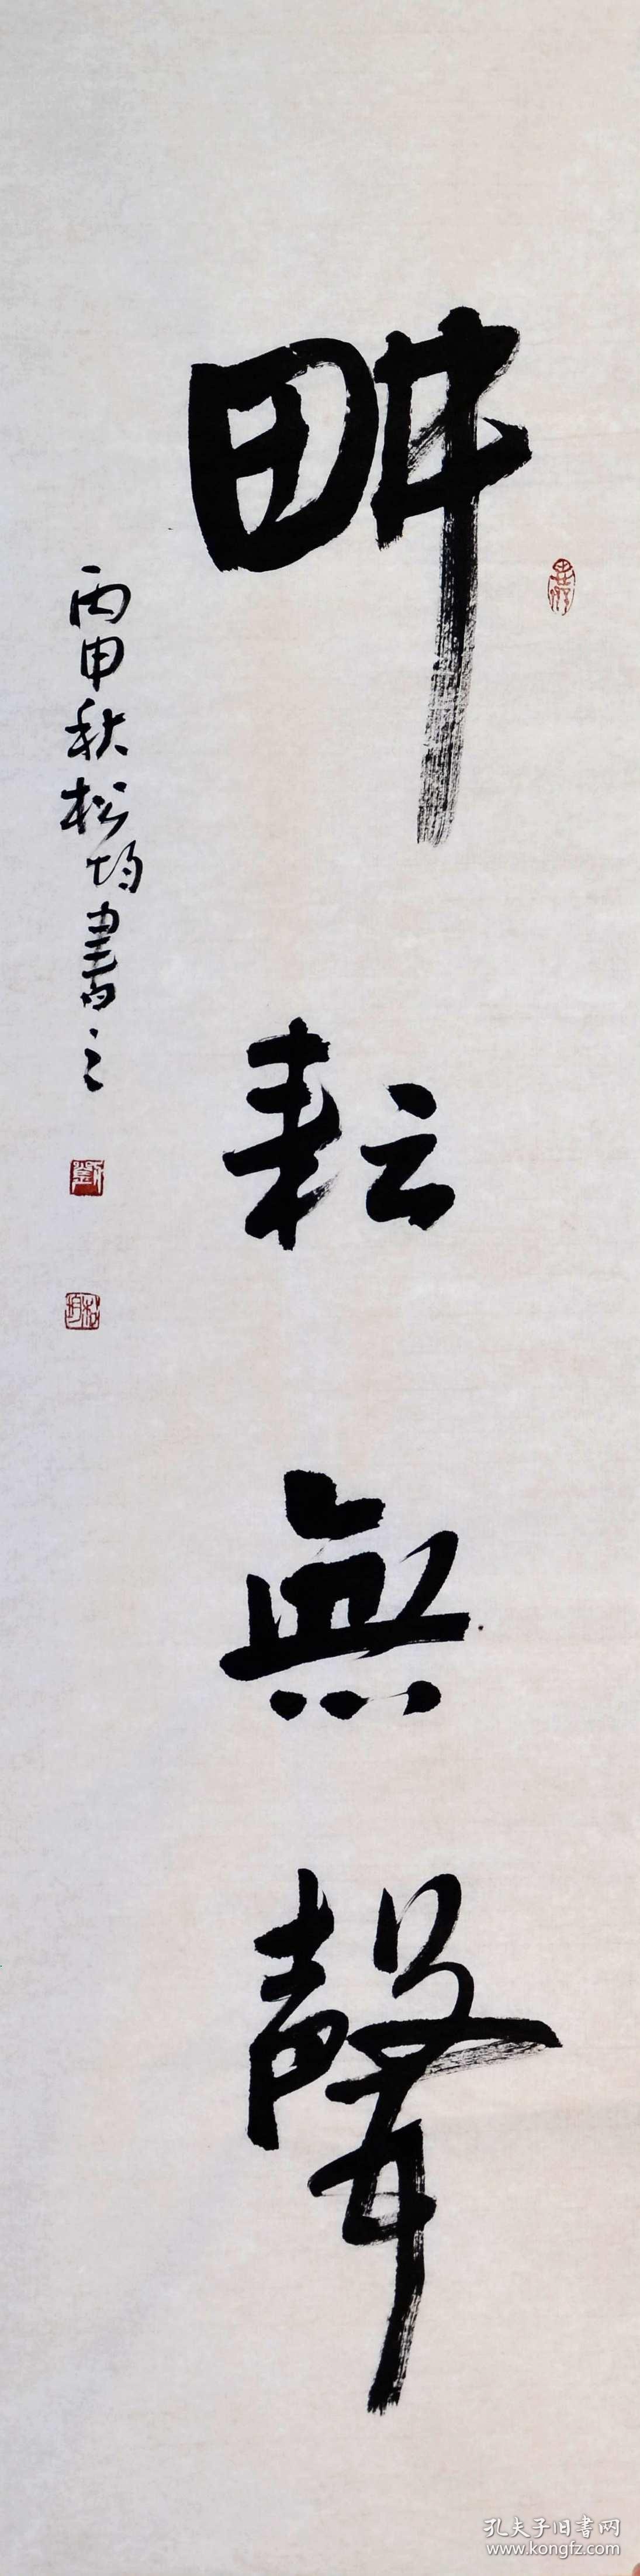 畊耘無聲
丙申秋松均書之
孔夫子旧书网
www.kongfz.com